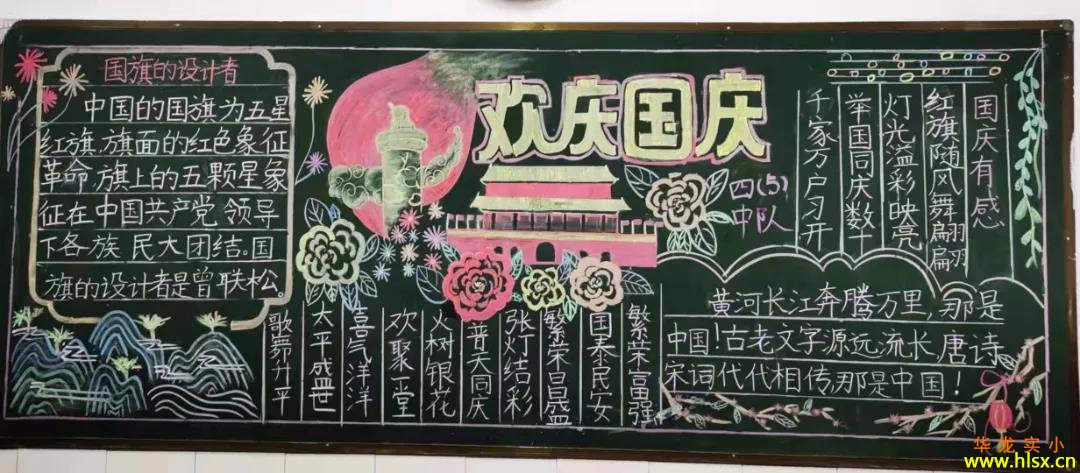 国旗的设计者
中国的国旗为五星
红旗,旗面的红色象征
革命,旗上的五颗星象
征在中国共产党 领导
下各族 民大团结。国
旗的设计者是曾联松。
欢庆国庆
四(5)
中队
国庆有感
红旗随风舞翩翩
灯光溢彩映亮
举国同庆数十
千家万户习开
歌舞升平
太平盛世
喜气洋洋
欢聚一堂
火树银花
普天同庆
张灯结彩
繁荣昌盛
国泰民安
繁荣富强
黄河长江奔腾万里,那是
中国!古老文字源远流长,唐诗
宋词代代相传,那是中国!
华龙实小
www.hlsx.cn